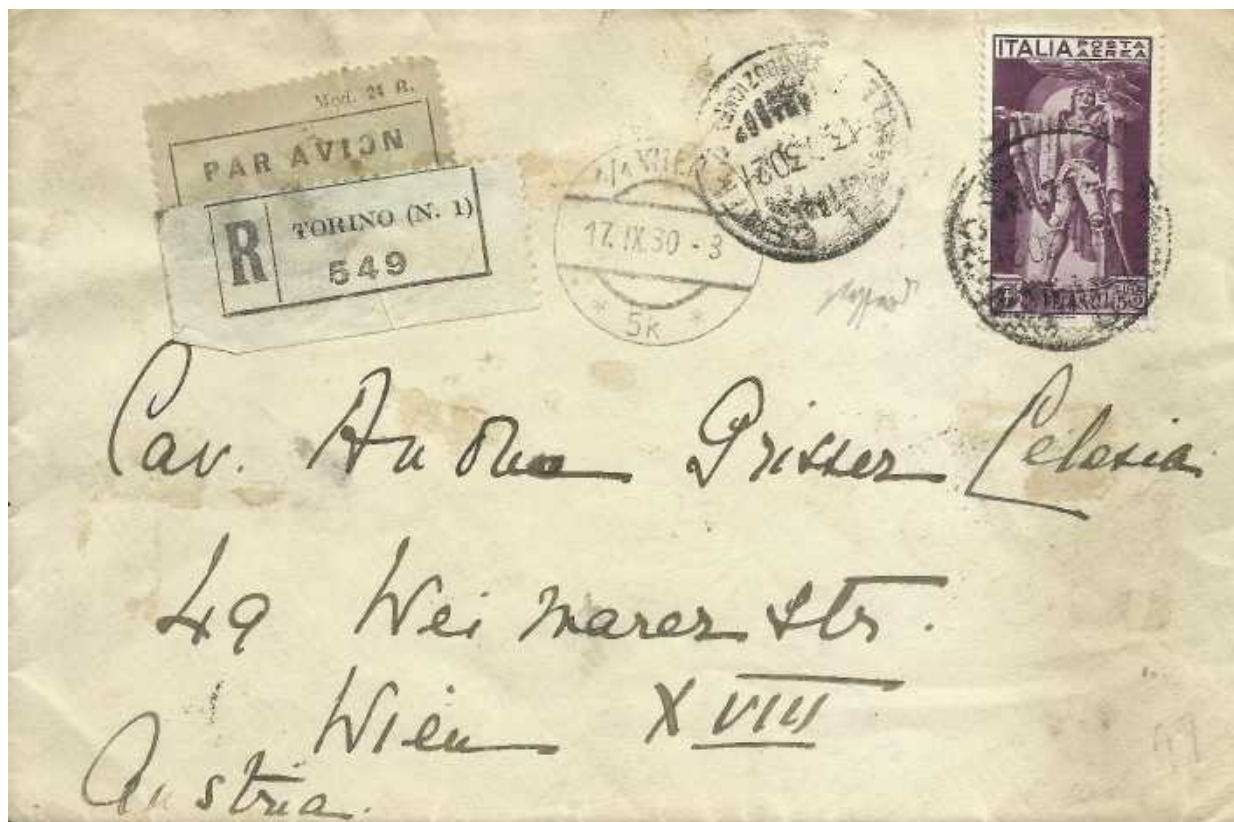 Mod. 24 B.
PAR AVION
R TORINO (N. 1)
549
WIEN
17. IX. 30 - 3
* 5k *
ITALIA POSTA AEREA
Cav. Grisser Celesia
49 Weimarer Str.
Wien XVIII
Austria.